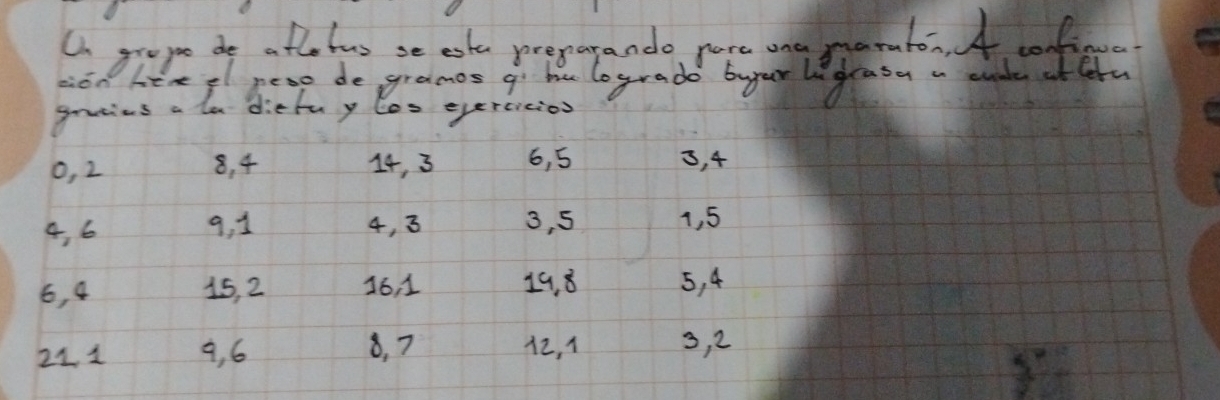 Un grupo de atletas se esta preparando para una maratón, A continua-
ción el peso de gramos q' ha logrado bajar la grasa a cada atleta
gracias a la dieta y los ejercicios
0,2 8,4 14,3 6,5 3,4
4,6 9,1 4,3 3,5 1,5
6,4 15,2 16,1 19,8 5,4
21,1 9,6 8,7 12,1 3,2